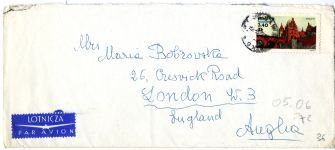 Mrs
Maria Bobrowska
26, Creswick Road
London W. 3
England
Anglia
05.06
72
36
LOTNICZA
PAR AVION
3.40